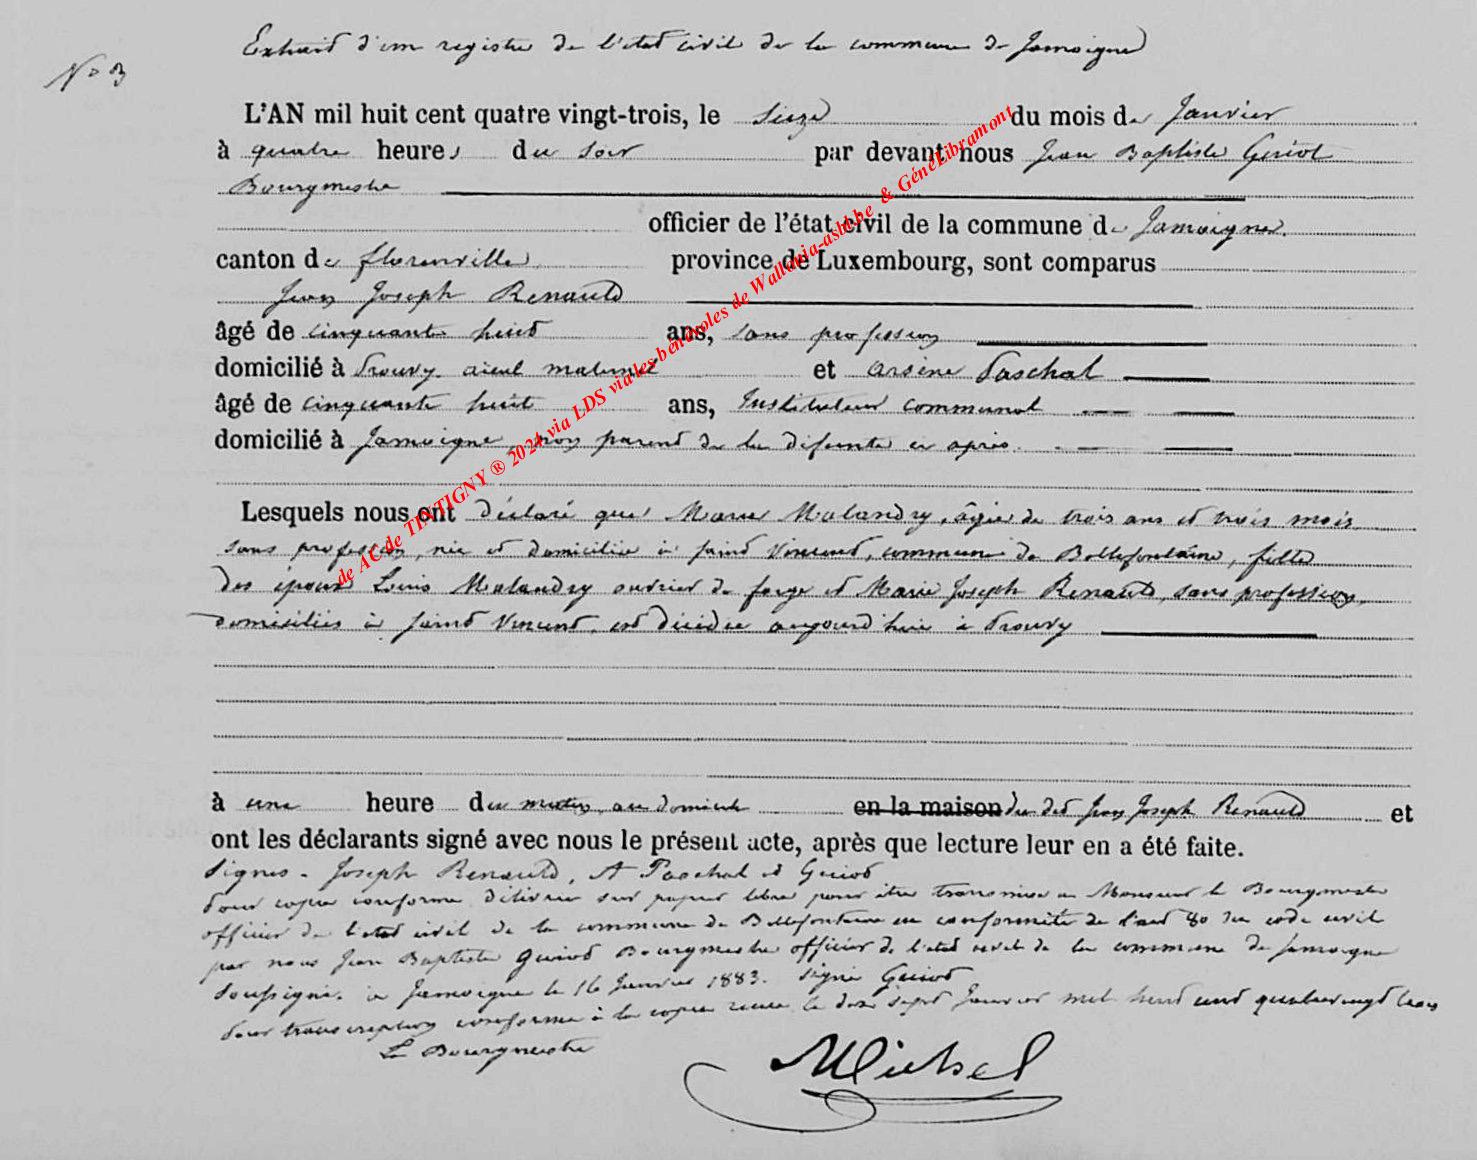 Extrait d'un registre de l'état civil de la commune de Jamoigne
N° 3
L'AN mil huit cent quatre vingt-trois, le Seize du mois de Janvier
à quatre heures du soir par devant nous Jean Baptiste Guiot
Bourgmestre
officier de l'état civil de la commune de Jamoigne
canton de florenville province de Luxembourg, sont comparus
Jean Joseph Renauld
âgé de cinquante huit ans, sans profession
domicilié à Prouvy aieul maternel et Arsène Paschal
âgé de cinquante huit ans, Instituteur communal
domicilié à Jamoigne, non parent de la défunte ci après.
Lesquels nous ont déclaré que Marie Malandry, âgée de trois ans et trois mois
sans profession, née et domiciliée à saint Vincent, commune de Bellefontaine, fille
des époux Louis Malandry ouvrier de forge et Marie Joseph Renauld, sans profession,
domiciliés à saint Vincent, est décédée aujourd'hui à Prouvy
à une heure du matin, au domicile en la maison du dit Jean Joseph Renauld et
ont les déclarants signé avec nous le présent acte, après que lecture leur en a été faite.
Signés - Joseph Renauld, A Paschal et Guiot
Pour copie conforme délivrée sur papier libre pour être transmise à Monsieur le Bourgmestre
officier de l'état civil de la commune de Bellefontaine en conformité de l'art 80 du code civil
par nous Jean Baptiste Guiot Bourgmestre officier de l'état civil de la commune de Jamoigne
Soussigné. à Jamoigne le 16 Janvier 1883. signé Guiot
Pour transcription conforme à la copie reçue le dix sept Janvier mil huit cent quatrevingt trois
Le Bourgmestre
Michel
de AC de TINTIGNY ® 2024 via LDS via les bénévoles de Wallonia-asbl.be & GénéLibramont